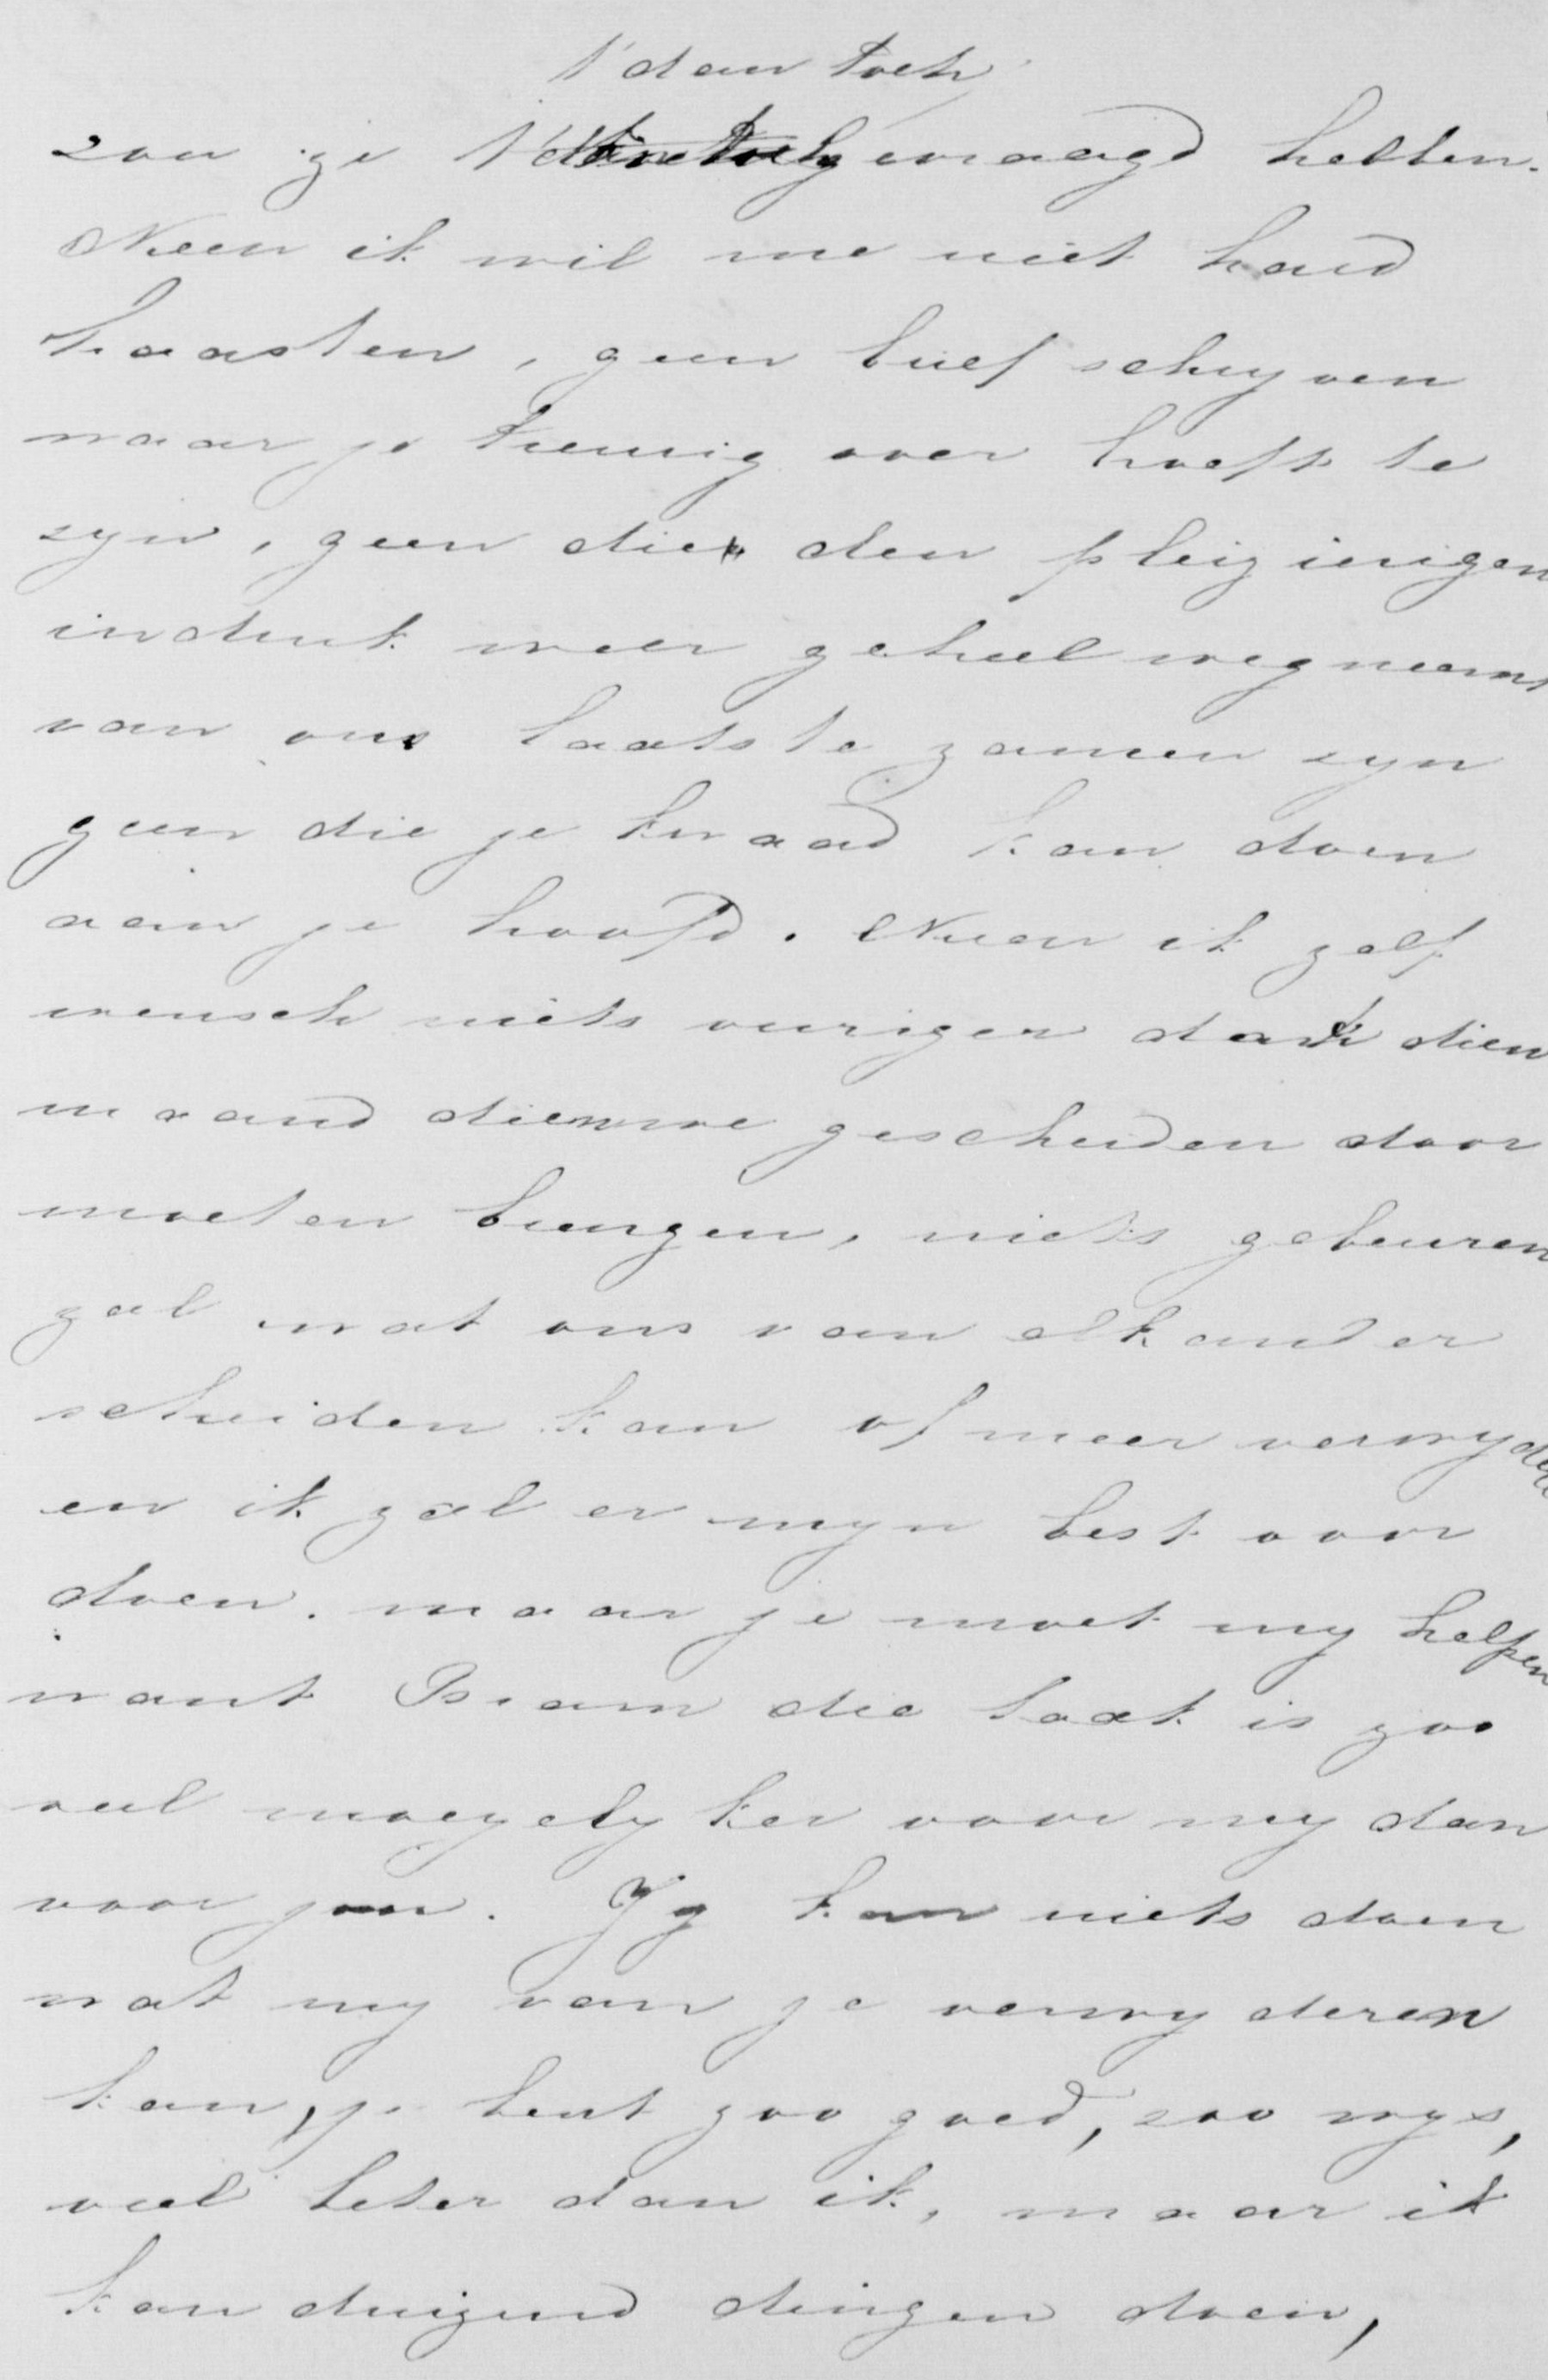 t' dan toch
zou ze t' gevraagd hebben.
Neen ik wil me niet haud
haasten, geen brief schryven
waar je treurig over hoeft te
zyn, geen die den pleizierigen
indruk weer geheel wegneemt
van ons laatste zamen zyn
geen die je kwaad kan doen
aan je hoofd. Neen ik zelf
wensch niets vuriger dan dien
maand dien we gescheiden door
moeten brengen, niets gebeuren
zal wat ons van elkander
scheiden kan of meer verwyderen
en ik zal er myn best voor
doen. maar je moet my helpen
want Bram die taak is zoo
veel moeyelyker voor my dan
voor jou. Jy kan niets doen
wat my van je verwyderen
kan, je bent zoo goed, zoo wys,
veel beter dan ik, maar ik
kan duizend dingen doen,